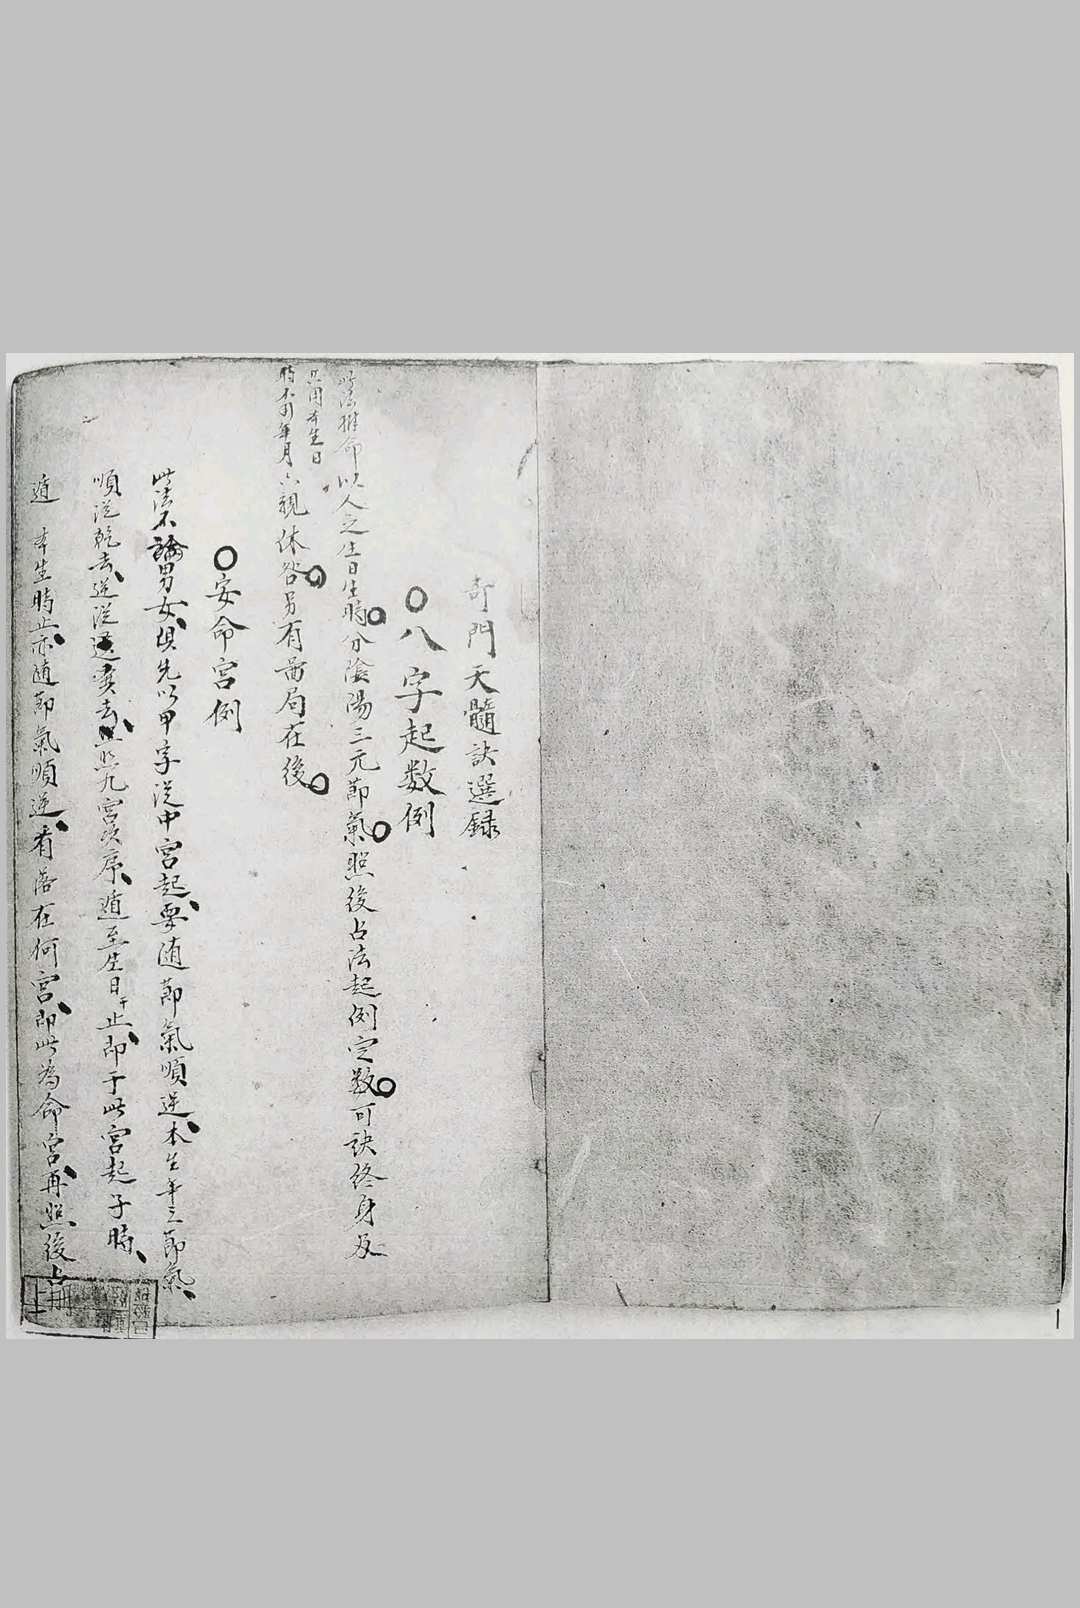 奇門天髓訣選録
○八字起数例
此法推命以人之生日生時分陰陽三元節氣照後占法起例定数可訣終身及
只用本生日
時不用年月
六親休咎另有啚局在後
○安命宫例
此法不論男女俱先以甲字従中宫起要随節氣順逆本生年之節氣
順従乾去逆従巽去照九宫次序遁至生日干止即于此宫起子時
遁本生時止亦随節氣順逆看落在何宫即此為命宫再照後占
上册